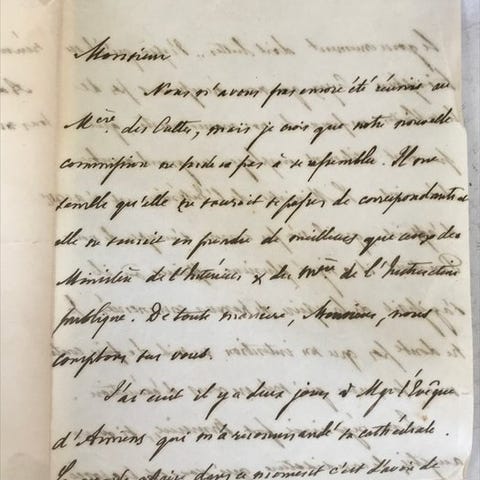 Monsieur
Nous n'avons pas encore été réunis au
Mère des Cultes, mais je crois que notre nouvelle
commission ne tardera pas à se rassembler. Il me
semble qu'elle ne saurait se passer de correspondants et
elle ne saurait en prendre de meilleurs que ceux des
Ministère de l'Intérieur & du mère de l'Instruction
publique. De toute manière, Monsieur, nous
comptons sur vous.
J'ai écrit il y a deux jours à Mgr l'Evêque
d'Amiens qui m'a recommandé sa cathédrale.
dans ce moment c'est d'avoir de